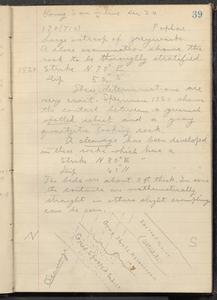 39
Large outcrop of greywacke
A close examination shows the
rock to be thoroughly stratified
Strike N 79° E
1250 Dip 53° S
These determinations are
very exact. Specimen 1250 shows
the contact between a greenish
spotted schist and a gray
quartzite looking rock.
A cleavage has been developed
in these rocks which have a
Strike N 80° E
Dip 45° N
The beds are about 2 ft thick. In some
the contacts are mathematically
straight in others slight crumpling
can be seen.
N
S
Cleavage